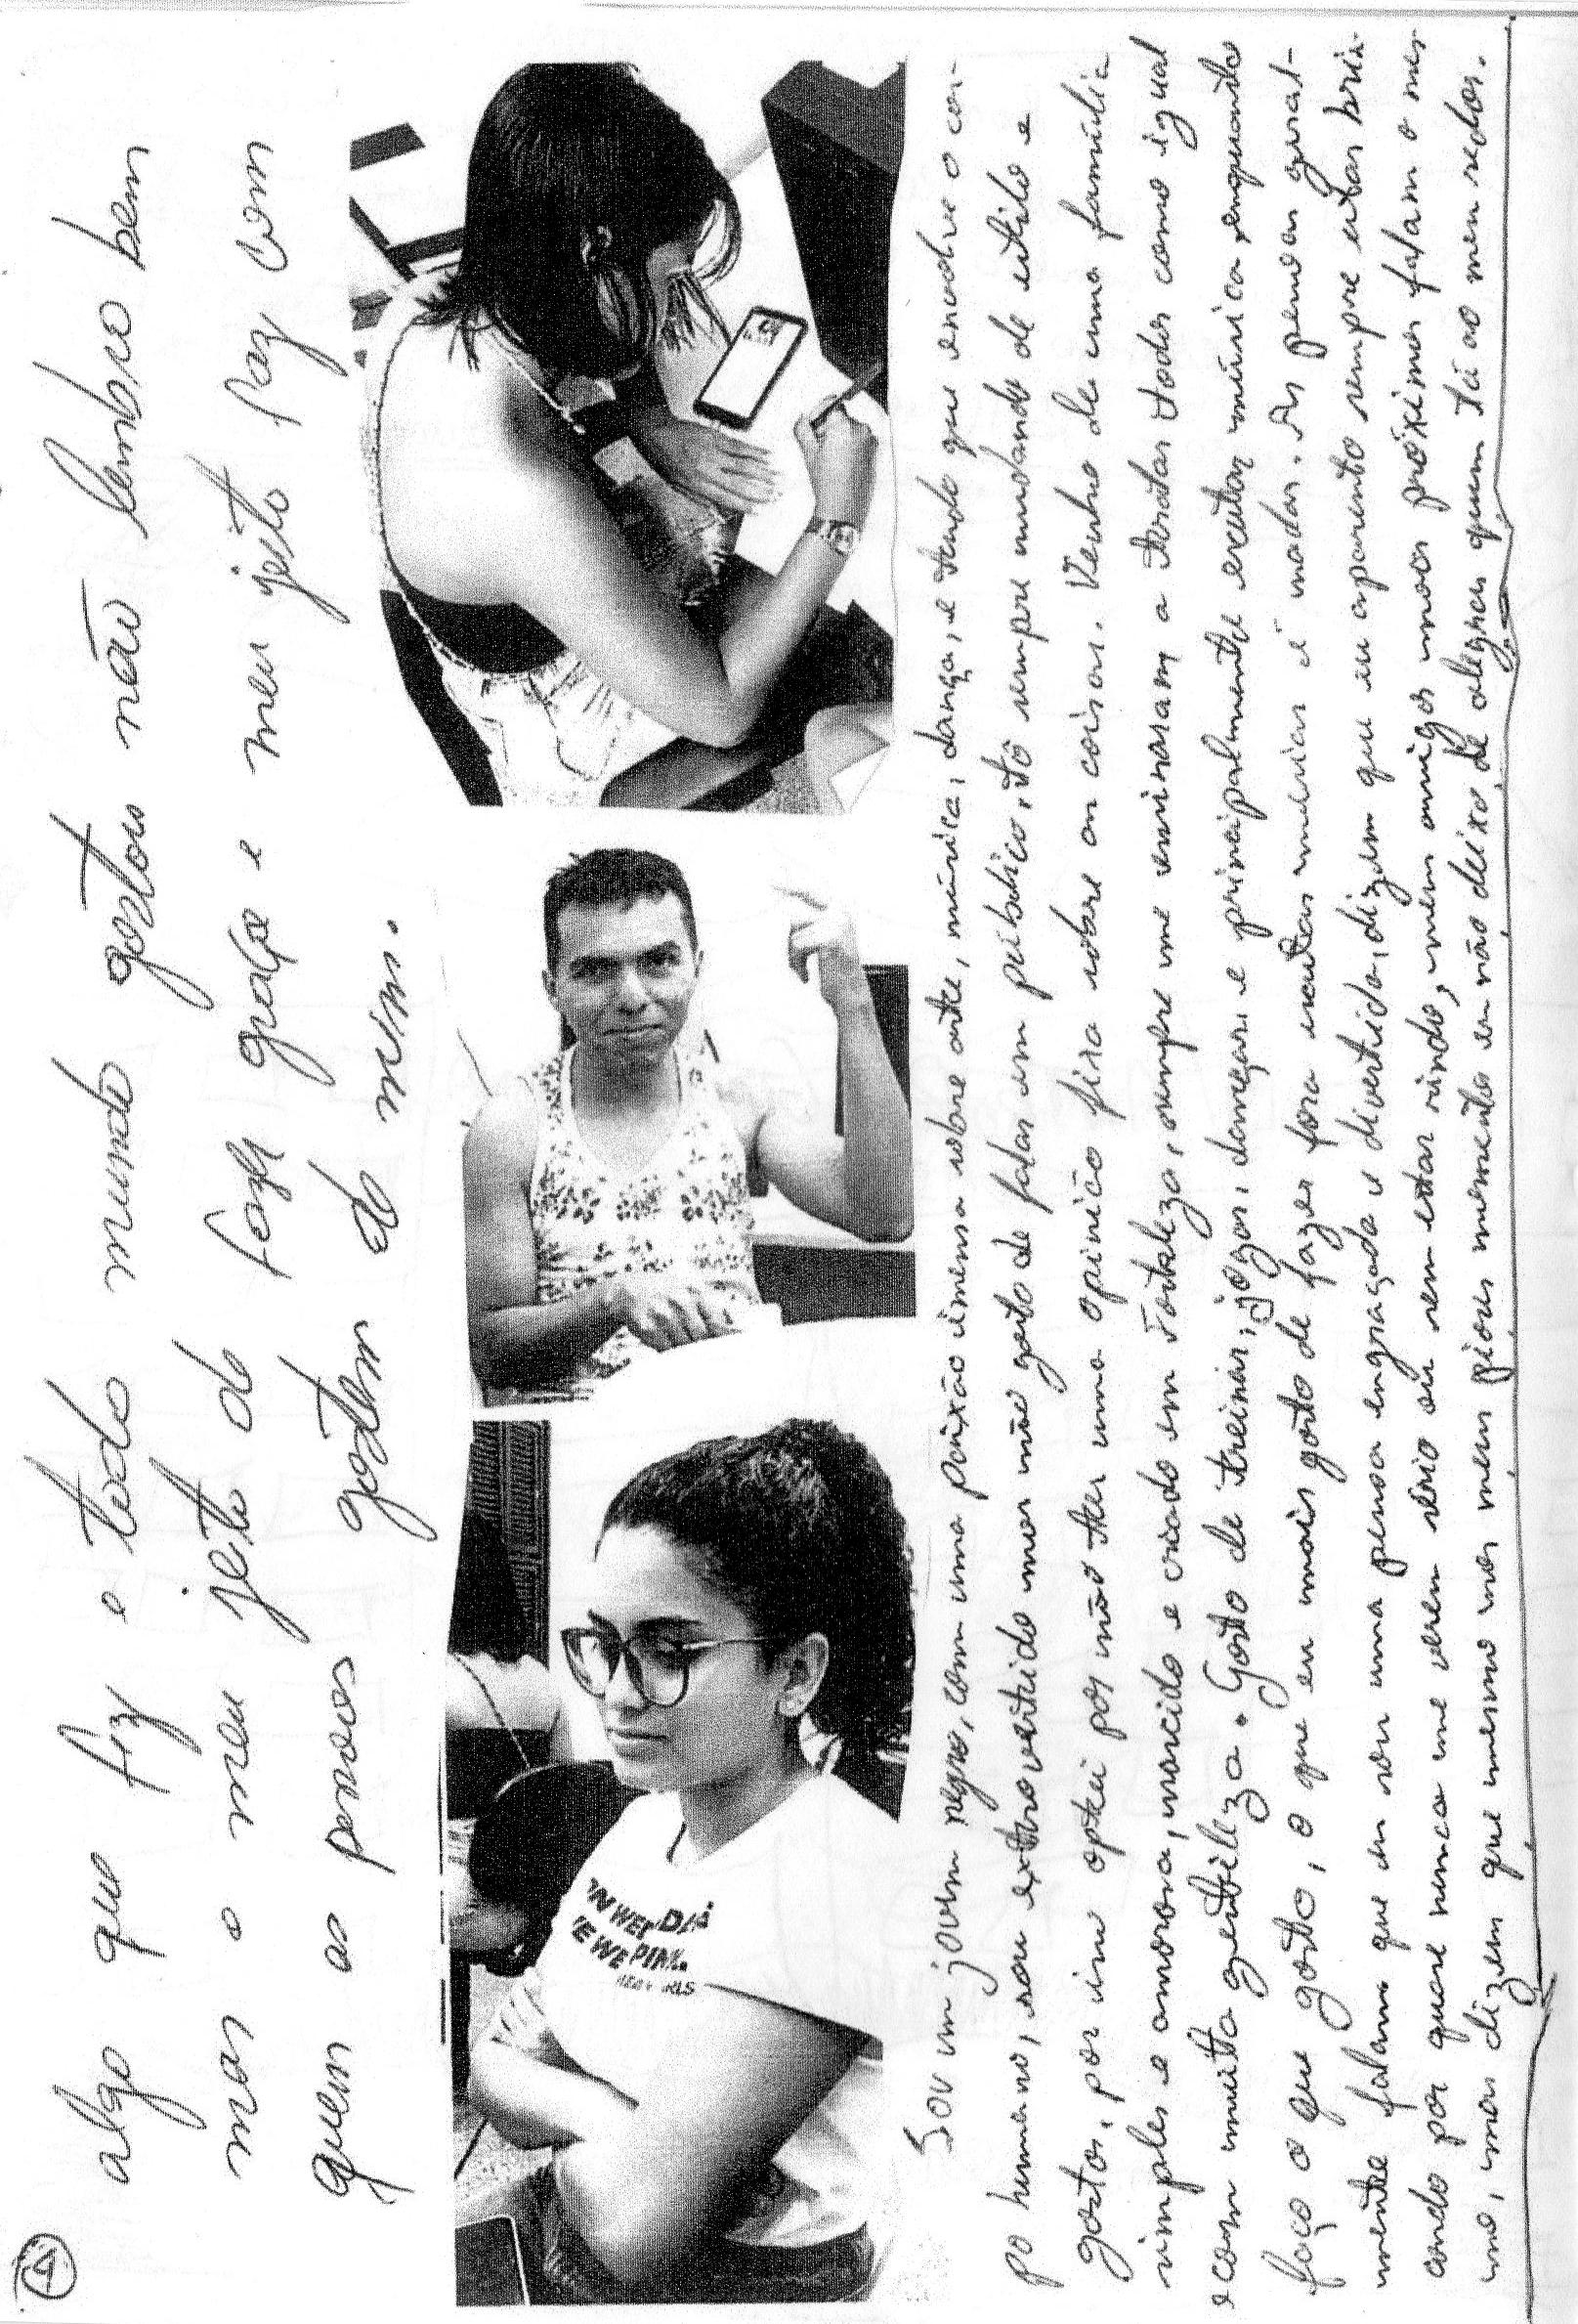 algo que fiz e todo mundo gostou não lembro bem
mas o meu jeito de fazer graça e meu jeito faz com
quem as pessoas gostem de mim.
ON WEDDA
E WE PINK.
RLS
Sou um jovem negro, com uma paixão imensa sobre arte, música, dança, e tudo que envolve o cor-
po humano, sou extrovertido mas não gosto de falar em público, tô sempre mudando de estilo e
gostos, por isso optei por não ter uma opinião fixa sobre as coisas. Venho de uma família
simples e amorosa, nascido e criado em Fortaleza, sempre me ensinaram a tratar todos como igual
e com muita gentileza. Gosto de treinar, jogar, dançar e principalmente escutar música enquanto
faço o que gosto, o que eu mais gosto de fazer fora escutar músicas é nadar. As pessoas geral-
mente falam que eu sou uma pessoa engraçada e divertida, dizem que eu aparento sempre estar brin-
cando por quase nunca me verem sério ou sem estar rindo, meus amigos mais próximos falam o mes-
mo, mas dizem que mesmo nos meus piores momentos eu não deixo de alegrar quem tá ao meu redor.